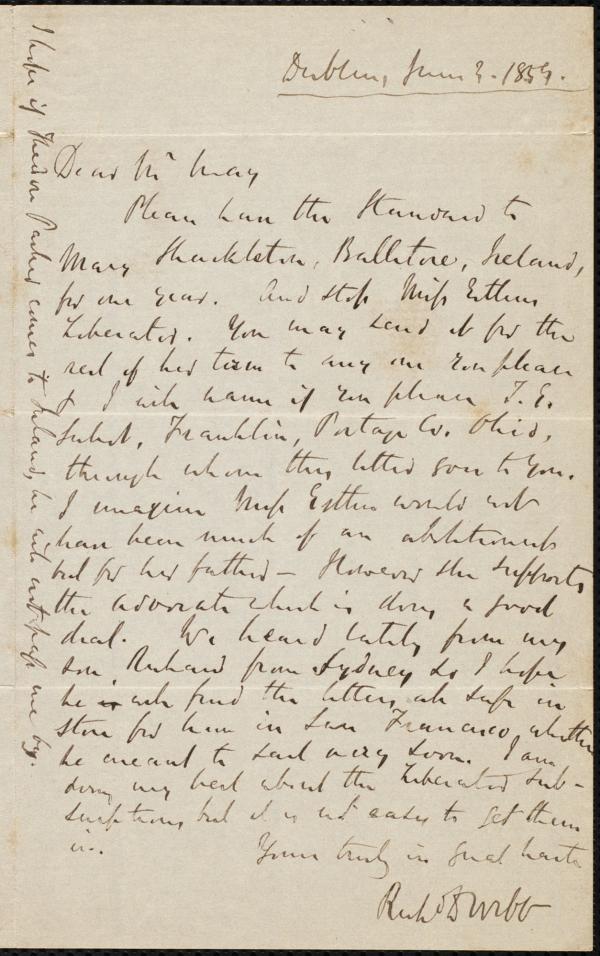 Dublin, June 3. 1859.
Dear Mr May
Please have the Standard to
Mary Shackleton, Ballitore, Ireland,
for one year. And stop Miss
Liberator. You may send it for the
rest of her term to any one you please
& I will name if you please J. E.
Franklin, Portage Co. Ohio,
through whom this letter goes to you.
I imagine Miss would not
have been much of an abolitionist
but for her father - However she supports
the Advocate which is doing a good
deal. We heard lately from my
son Richard from Sydney so I hope
he will find the letters all safe in
store for him in San Francisco, whither
he meant to sail very soon. I am
doing my best about the Liberator sub-
scriptions but it is not easy to get them
in.
Yours truly in great haste
Richd D Webb
I hope if Theodore Parker comes to Ireland, he will not pass me by.